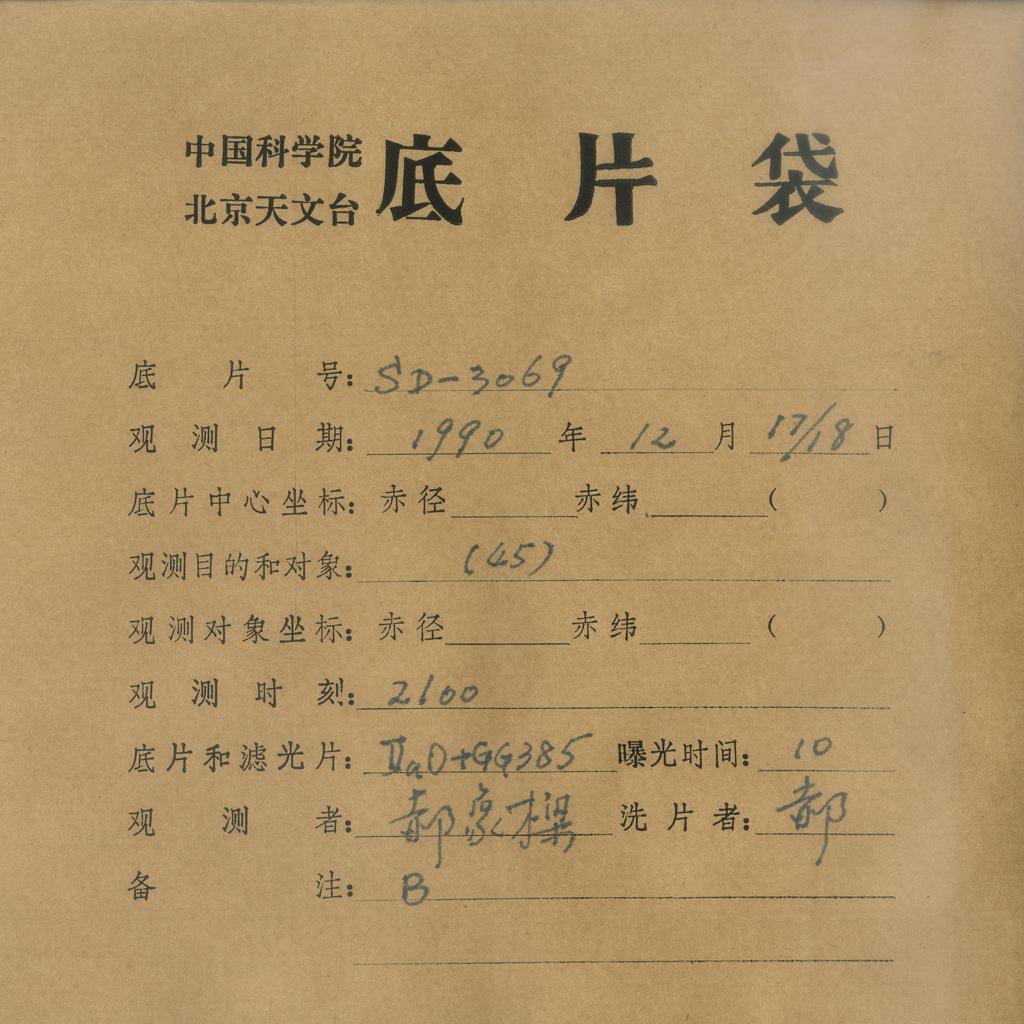 中国科学院
北京天文台 底片袋
底片号: SD-3069
观测日期: 1990 年 12 月 17/18 日
底片中心坐标: 赤径 赤纬 ( )
观测目的和对象: (45)
观测对象坐标: 赤径 赤纬 ( )
观测时刻: 2100
底片和滤光片: IIaO+GG385 曝光时间: 10
观测者: 郝象樑 洗片者: 郝
备注: B